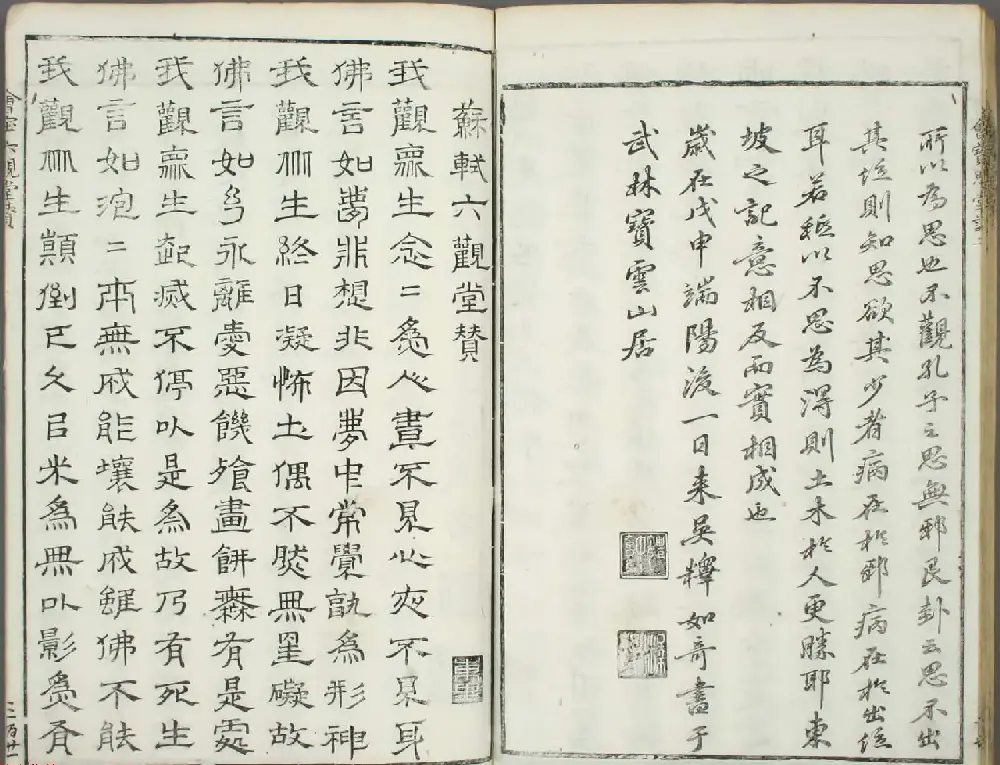 所以為思也不觀孔子之思無邪艮卦云思不出
其位則知思欲其少者病在於邪病在於出位
耳若輒以不思為得則土木於人更勝耶東
坡之記意相反而實相成也
歲在戊申端陽後一日來吳釋如奇書于
武林寶雲山居
蘇軾六觀堂贊
我觀眾生念二為人晝不見心夜不見身
佛言如夢非想非因夢中常覺孰為形神
我觀眾生終日凝怖土偶不然無罣礙故
佛言如幻永離愛惡饑飧畫餅無有是處
我觀眾生起滅不停以是為故乃有死生
佛言如泡二本無成能壞能成雖佛不能
我觀眾生顛倒已久以光為無以影為有